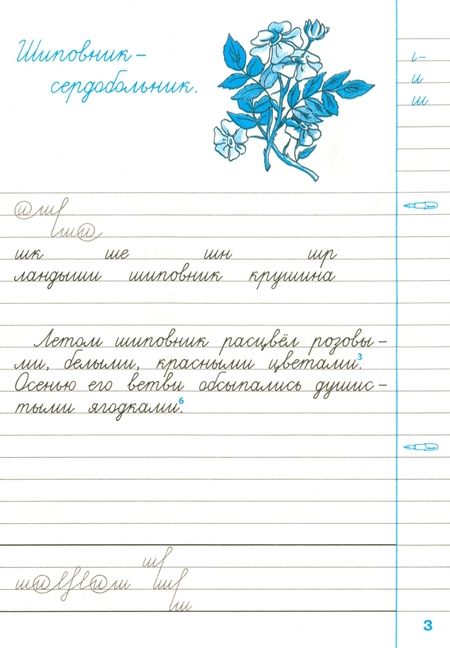 Шиповник –
сердобольник.
ι–
и
ш
шк ше шн шр
ландыши шиповник крушина
Летом шиповник расцвёл розовы-
ми, белыми, красными цветами.³
Осенью его ветви обсыпались душис-
тыми ягодками.⁶
3